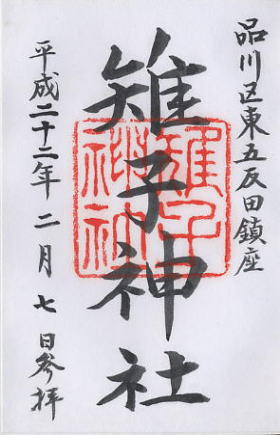 品川区東五反田鎮座
雉子神社
平成二十二年二月七日参拝
雉子
神社